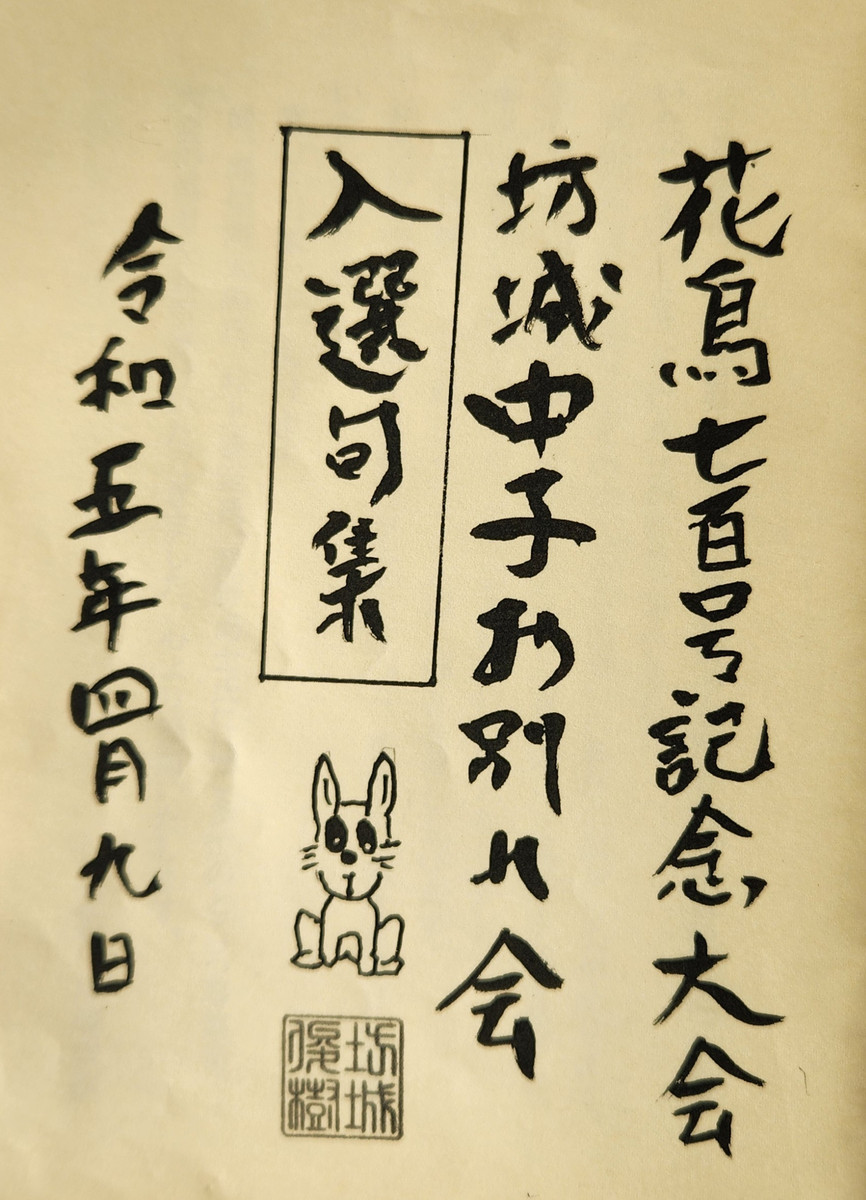 花鳥七百号記念大会
坊城中子お別れ会
入選句集
令和五年四月九日
坊城
俊樹